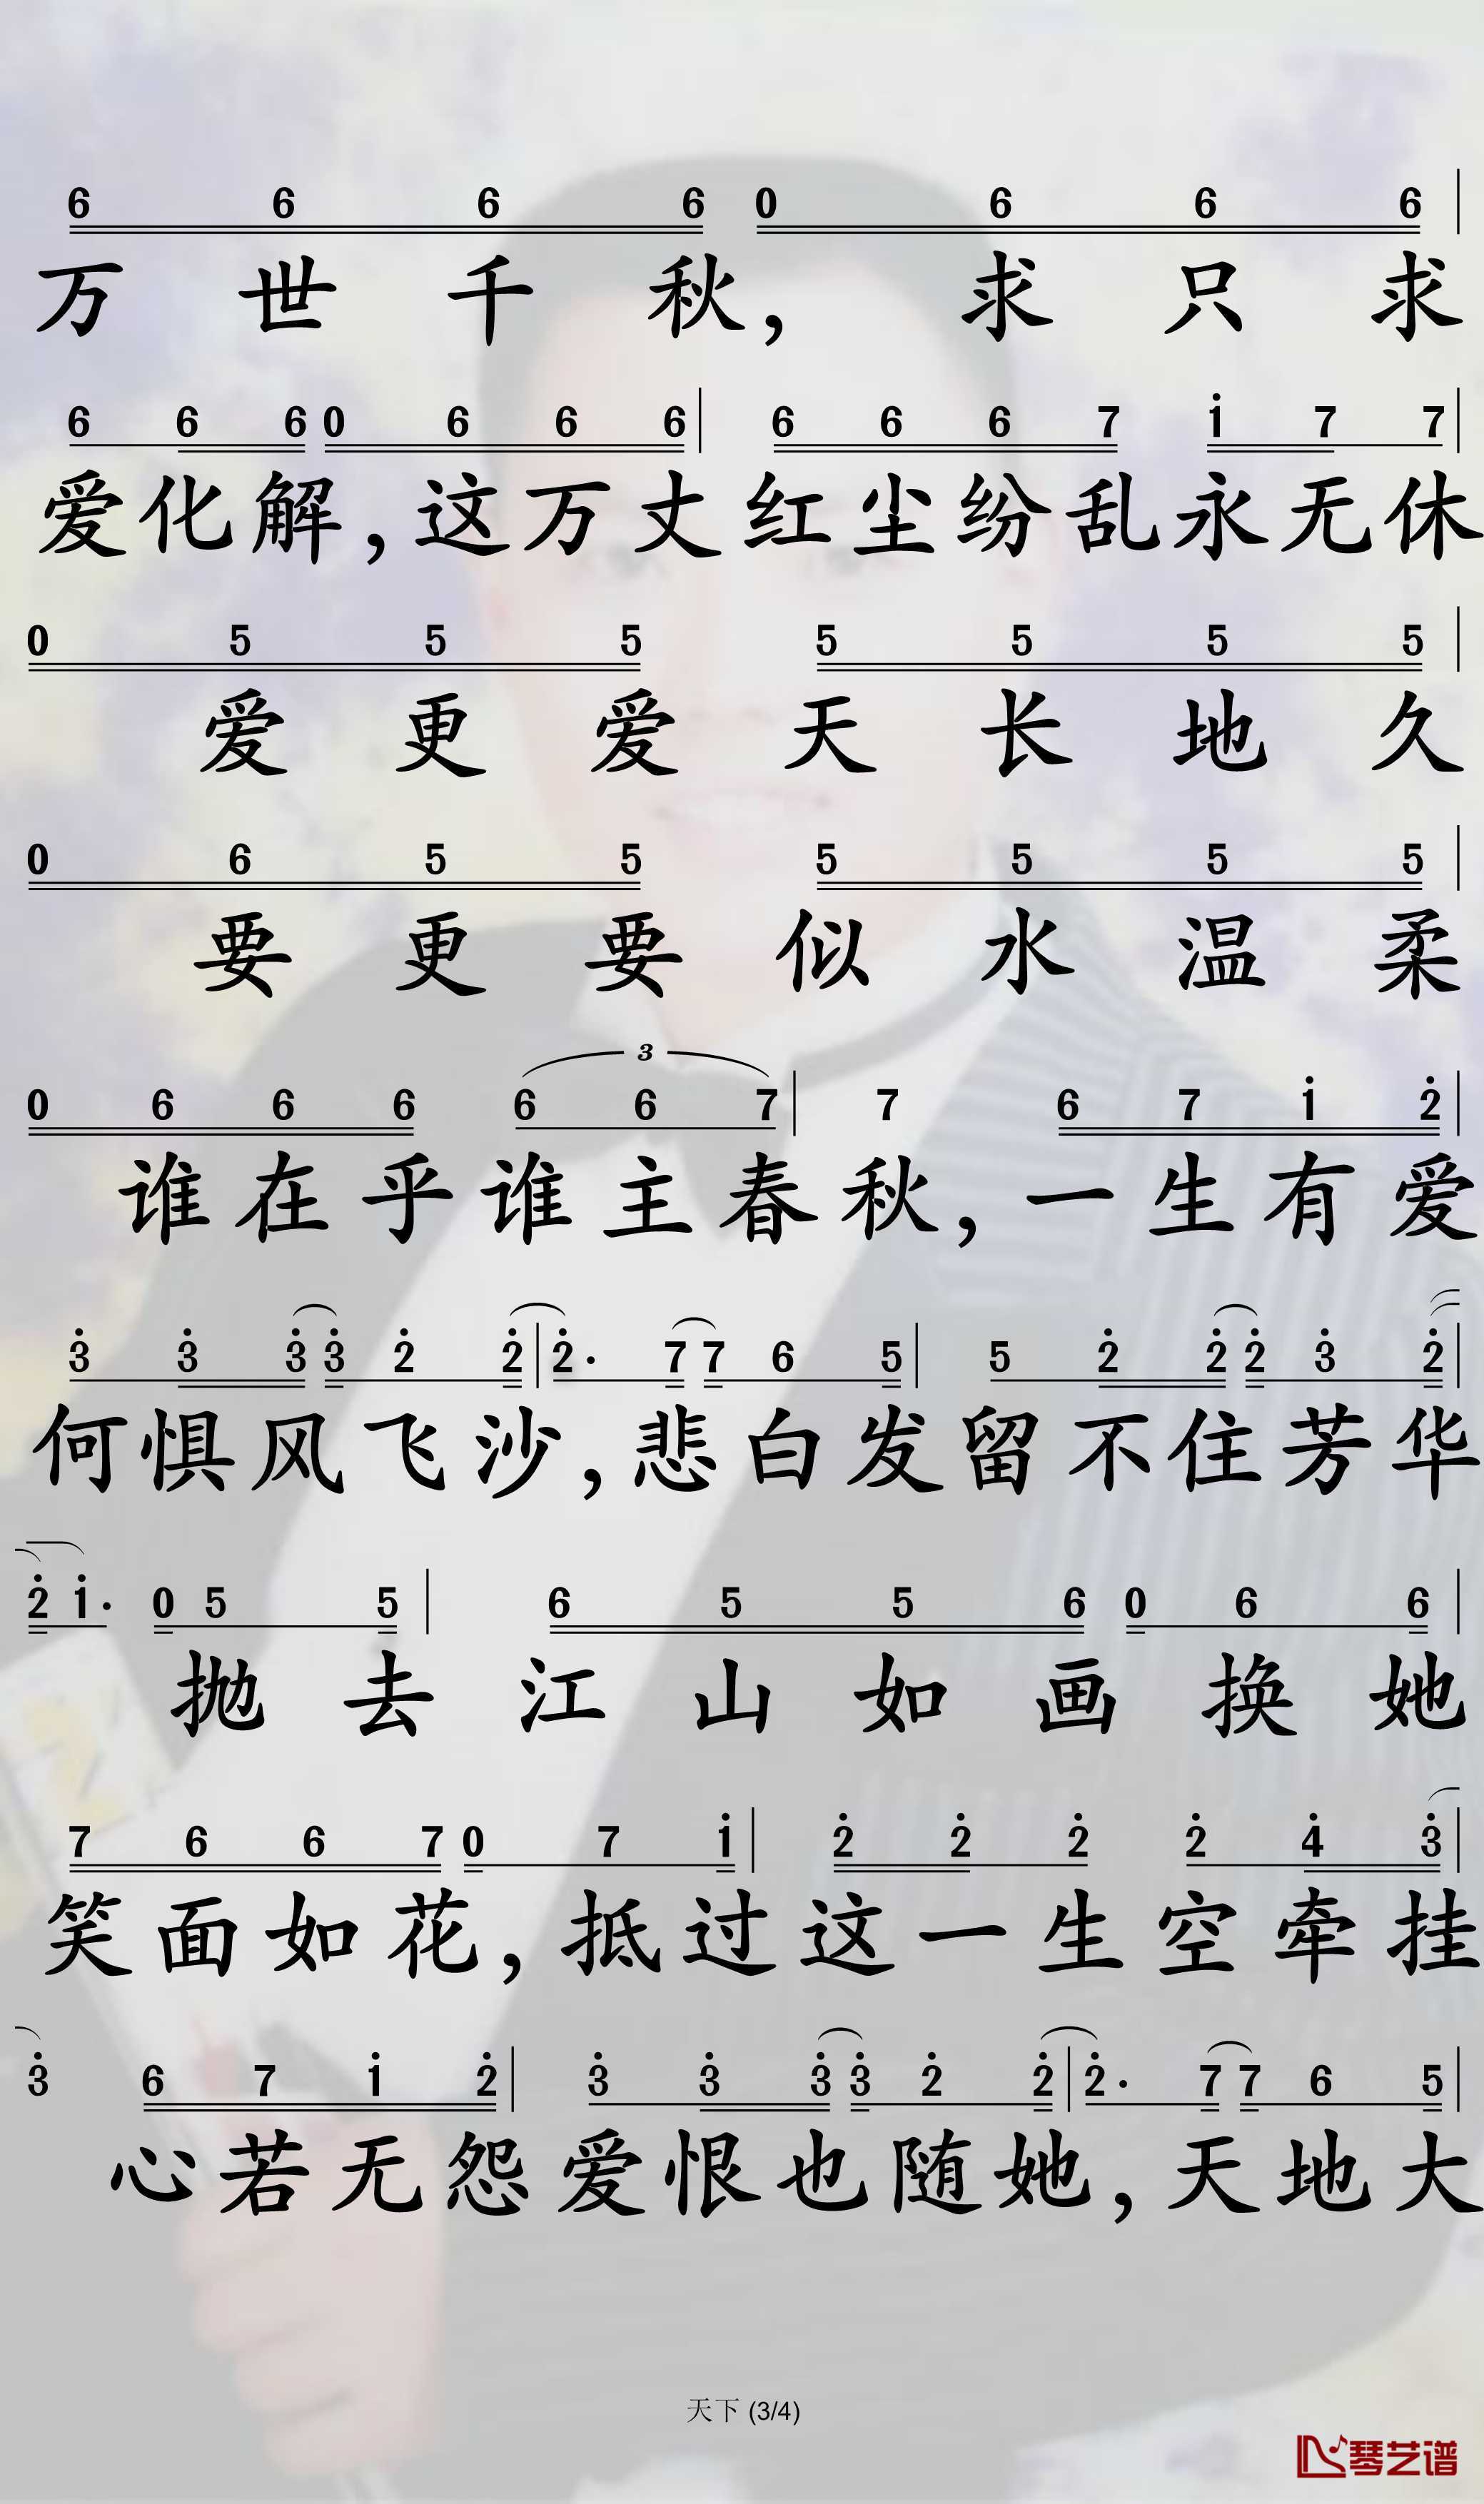 6 6 6 6 0 6 6 6
万世千秋，求只求
6 6 6 0 6 6 6 6 6 6 7 i 7 7
爱化解，这万丈红尘纷乱永无休
0 5 5 5 5 5 5 5
爱更爱天长地久
0 6 5 5 5 5 5 5
要更要似水温柔
3
0 6 6 6 6 6 7 7 6 7 i 2
谁在乎谁主春秋，一生有爱
3 3 3 3 2 2 2· 7 7 6 5 5 2 2 2 3 2
何惧风飞沙，悲白发留不住芳华
2 i· 0 5 5 6 5 5 6 0 6 6
抛去江山如画换她
7 6 6 7 0 7 i 2 2 2 2 4 3
笑面如花，抵过这一生空牵挂
3 6 7 i 2 3 3 3 3 2 2 2· 7 7 6 5
心若无怨爱恨也随她，天地大
天下 (3/4)
琴艺谱